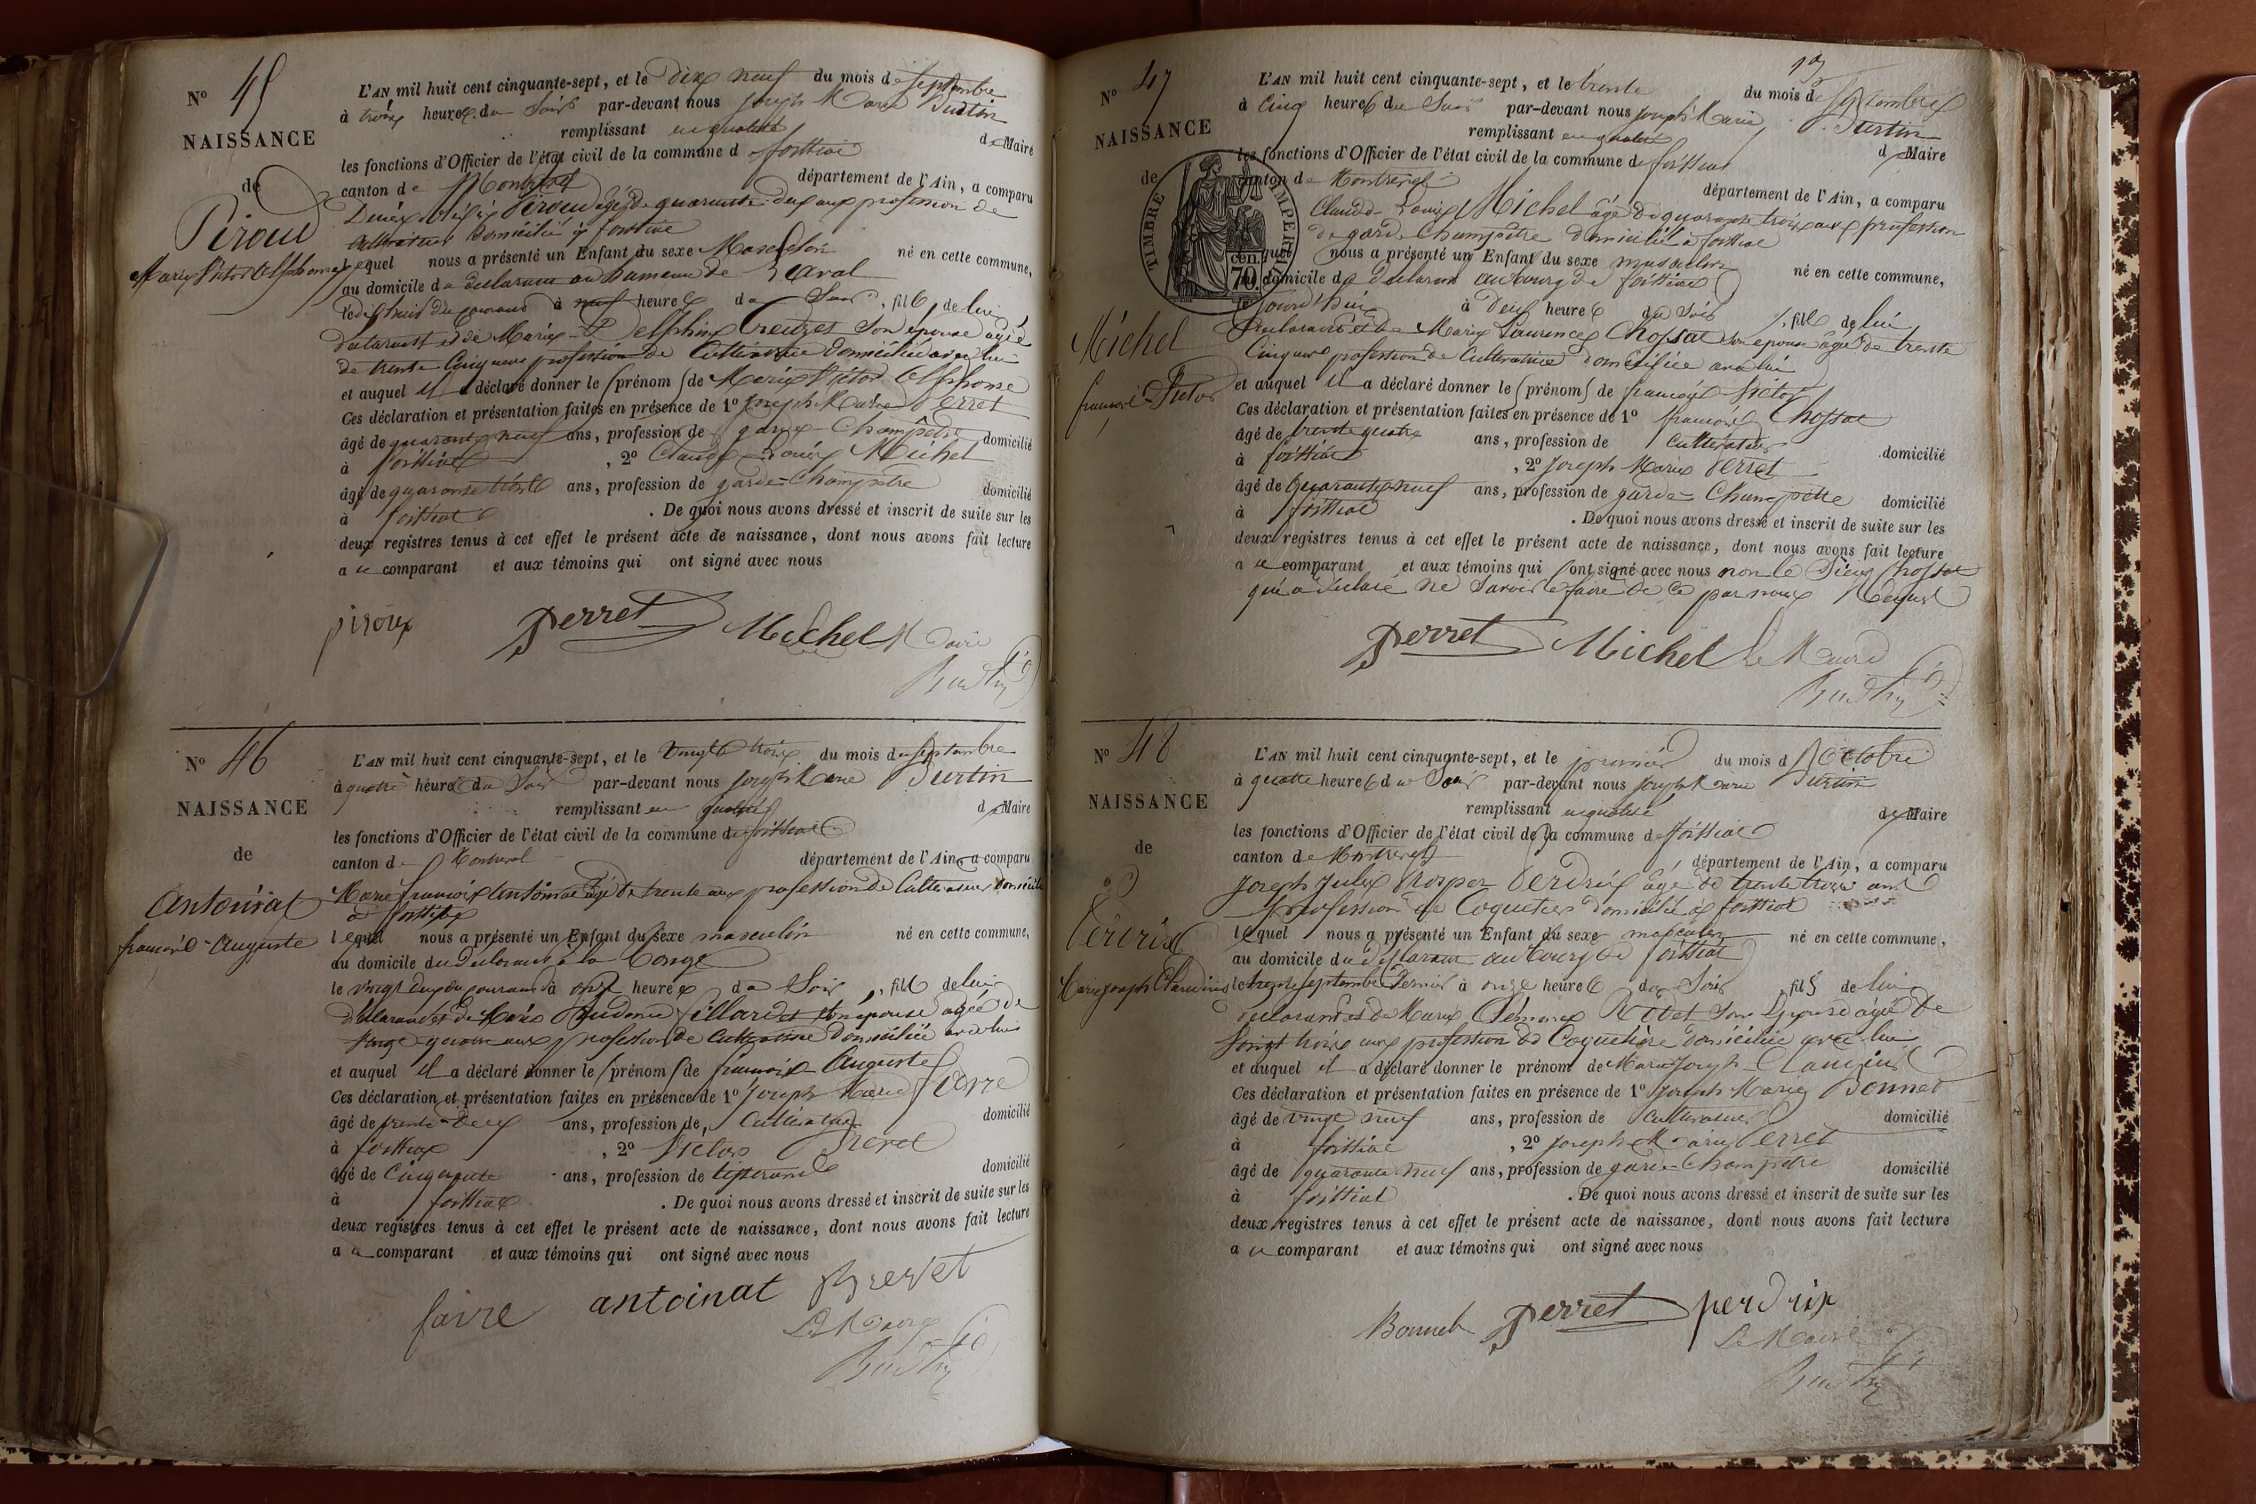 N° 45
NAISSANCE
de
Piroud
Marie Victor Alphonse
L'AN mil huit cent cinquante-sept, et le Dix neuf du mois de Septembre
à trois heures du Soir par-devant nous Joseph Marie Burtin
remplissant en qualité de Maire
les fonctions d'Officier de l'état civil de la commune de foissiat
canton de Montrevel département de l'Ain, a comparu
Piroud âgé de quarante deux ans profession de
Cultivateur Domicilié à foissiat
lequel nous a présenté un Enfant du sexe Masculin né en cette commune,
au domicile du déclarant au hameau de
du courant à neuf heures du Soir, fils de lui
déclarant et de Marie Delphine Creuzet Son épouse âgée
de trente Cinq ans profession de Cultivatrice domiciliée avec lui
et auquel il a déclaré donner les prénoms de Marie Victor Alphonse
Ces déclaration et présentation faites en présence de 1° Joseph Marie Perret
âgé de quarante neuf ans, profession de garde-Champêtre domicilié
à foissiat, 2° Claude Louis Michel
âgé de quarante trois ans, profession de garde-Champêtre domicilié
à foissiat. De quoi nous avons dressé et inscrit de suite sur les
deux registres tenus à cet effet le présent acte de naissance, dont nous avons fait lecture
a ce comparant et aux témoins qui ont signé avec nous
piroux perret Michel Le Maire
Burtin
N° 46
NAISSANCE
de
Antoinat
françois-Auguste
L'AN mil huit cent cinquante-sept, et le Vingt trois du mois de Septembre
à quatre heures du Soir par-devant nous Joseph Marie Burtin
remplissant en qualité de Maire
les fonctions d'Officier de l'état civil de la commune de foissiat
canton de Montrevel département de l'Ain, a comparu
Marie françois Antoinat âgé de trente ans profession de Cultivateur domicilié
à foissiat
lequel nous a présenté un Enfant du sexe masculin né en cette commune,
au domicile du déclarant à la
le vingt deux du courant à onze heures du Soir, fils de lui
déclarant et de Marie Son épouse âgée de
Vingt quatre ans profession de Cultivatrice domiciliée avec lui
et auquel il a déclaré donner les prénoms de françois Auguste
Ces déclaration et présentation faites en présence de 1° Joseph Marie
âgé de trente-deux ans, profession de Cultivateur domicilié
à foissiat, 2° Victor
âgé de Cinquante ans, profession de tisserand domicilié
à foissiat. De quoi nous avons dressé et inscrit de suite sur les
deux registres tenus à cet effet le présent acte de naissance, dont nous avons fait lecture
a ce comparant et aux témoins qui ont signé avec nous
faivre antoinat
Le Maire
Burtin
N° 47
NAISSANCE
de
Michel
françois-Victor
TIMBRE IMPERIAL
70 cen.
L'AN mil huit cent cinquante-sept, et le trente du mois de Septembre
à Cinq heures du Soir par-devant nous Joseph Marie Burtin
remplissant en qualité de Maire
les fonctions d'Officier de l'état civil de la commune de foissiat
canton de Montrevel département de l'Ain, a comparu
Claude Louis Michel âgé de quarante trois ans profession
de garde Champêtre domicilié à foissiat
lequel nous a présenté un Enfant du sexe masculin né en cette commune,
au domicile du déclarant au bourg de foissiat
le Jourd'hui à Deux heures du Soir, fils de lui
déclarant et de Marie Laurence Chossat Son épouse âgée de trente
Cinq ans profession de Cultivatrice domiciliée avec lui
et auquel il a déclaré donner les prénoms de françois Victor
Ces déclaration et présentation faites en présence de 1° françois Chossat
âgé de trente quatre ans, profession de Cultivateur domicilié
à foissiat, 2° Joseph Marie Perret
âgé de Quarante neuf ans, profession de garde-Champêtre domicilié
à foissiat. De quoi nous avons dressé et inscrit de suite sur les
deux registres tenus à cet effet le présent acte de naissance, dont nous avons fait lecture
a ce comparant et aux témoins qui ont signé avec nous non le Sieur Chossat
qui a déclaré ne Savoir le faire de ce par nous Requis
perret Michel Le Maire
Burtin
N° 48
NAISSANCE
de
Perdrix
Marie Joseph Claudius
L'AN mil huit cent cinquante-sept, et le premier du mois d'Octobre
à quatre heures du Soir par-devant nous Joseph Marie Burtin
remplissant en qualité de Maire
les fonctions d'Officier de l'état civil de la commune de foissiat
canton de Montrevel département de l'Ain, a comparu
Joseph Jules Prosper Perdrix âgé de trente trois ans
profession de Coquetier domicilié à foissiat
lequel nous a présenté un Enfant du sexe masculin né en cette commune,
au domicile du déclarant au bourg de foissiat
le trente septembre Dernier à onze heures du Soir, fils de lui
déclarant et de Marie Clémence Son Epouse âgée de
Vingt trois ans profession de Coquetière domiciliée avec lui
et auquel il a déclaré donner le prénom de Marie Joseph Claudius
Ces déclaration et présentation faites en présence de 1° Joseph Marie Bonnet
âgé de vingt neuf ans, profession de Cultivateur domicilié
à foissiat, 2° Joseph Marie Perret
âgé de quarante neuf ans, profession de garde-Champêtre domicilié
à foissiat. De quoi nous avons dressé et inscrit de suite sur les
deux registres tenus à cet effet le présent acte de naissance, dont nous avons fait lecture
a ce comparant et aux témoins qui ont signé avec nous
Bonnet perret perdrix
Le Maire
Burtin